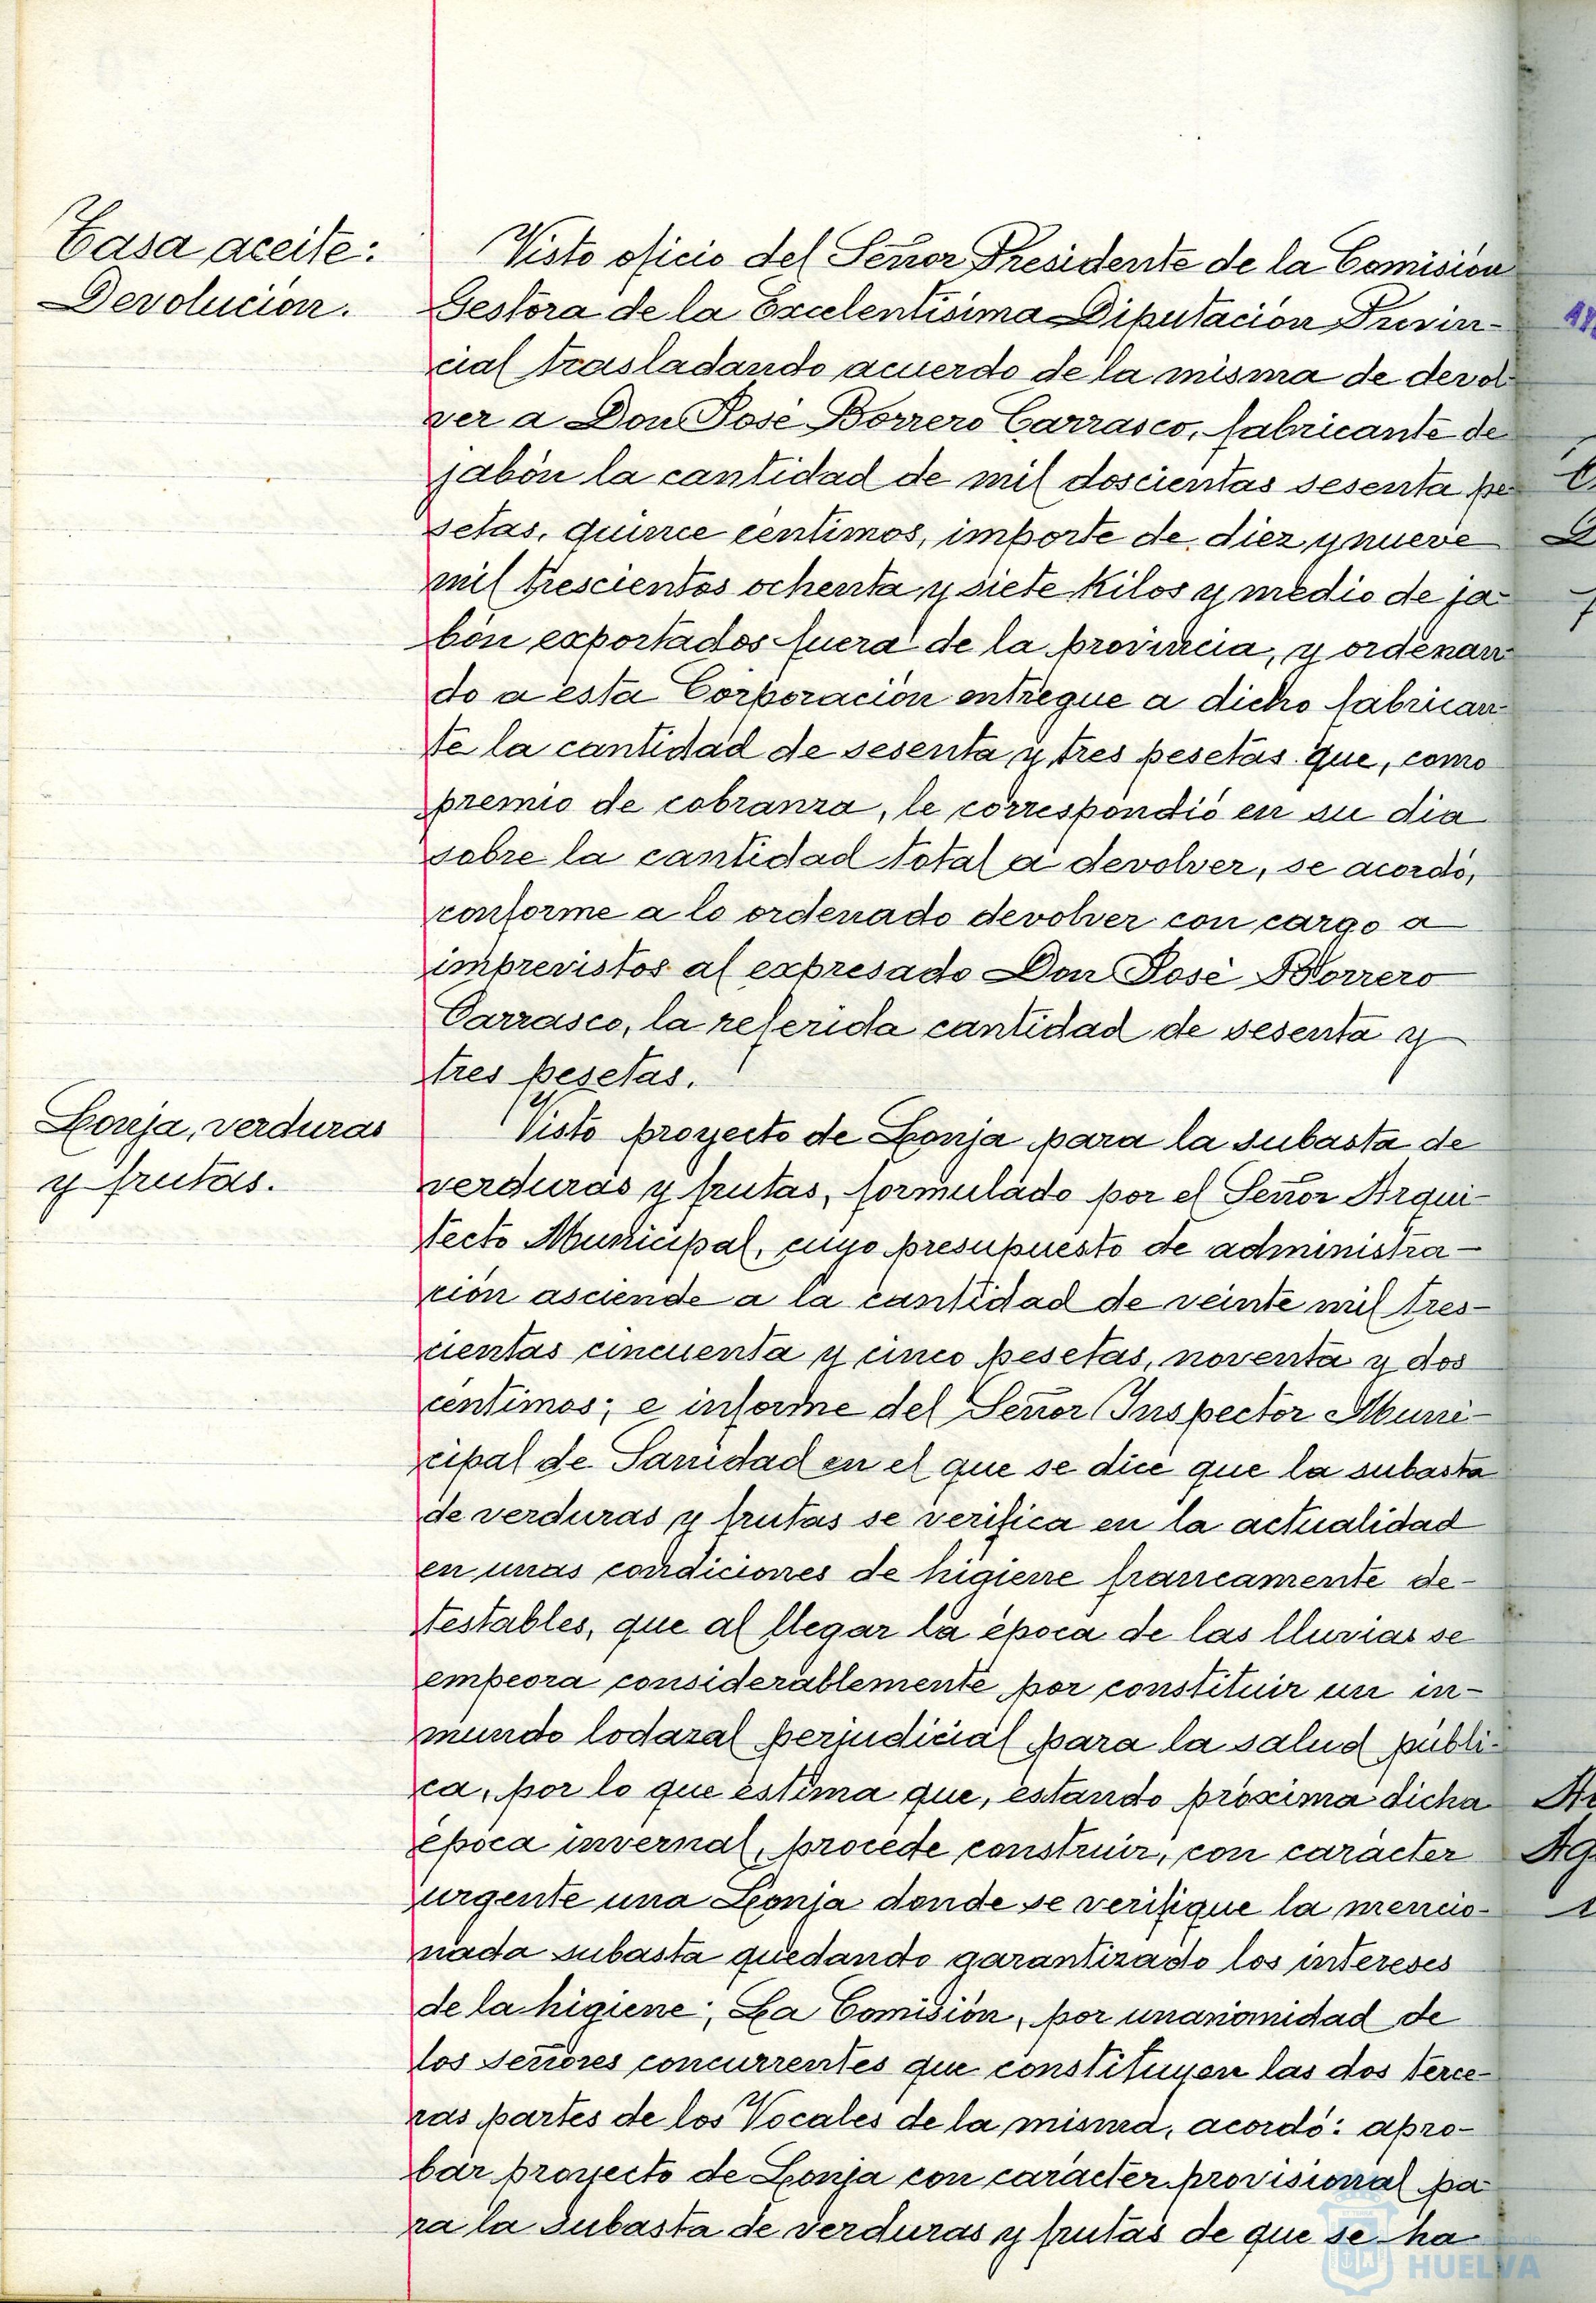 Casa aceite:
Devolucion.
Visto oficio del Señor Presidente de la Comisión
Gestora de la Excelentisima Diputación Provin-
cial trasladando acuerdo de la misma de devol-
ver a Don José Borrero Carrasco, fabricante de
jabón la cantidad de mil doscientas sesenta pe
setas, quince centimos, importe de diez y nueve
mil trescientos ochenta y siete kilos y medio de ja
bón exportados fuera de la provincia, y ordenan
do a esta Corporación entregue a dicho fabrican-
te la cantidad de sesenta y tres pesetas que, como
premio de cobranza, le correspondió en su dia
sobre la cantidad total a devolver, se acordó,
conforme a lo ordenado devolver con cargo a
imprevistos al expresado Don José Borrero
Carrasco, la referida cantidad de sesenta y
tres pesetas.
Lonja, verduras
y frutas.
Visto proyecto de Lonja para la subasta de
verduras y frutas, formulado por el Señor Arqui-
tecto Municipal, cuyo presupuesto de administra-
ción asciende a la cantidad de veinte mil tres-
cientas cincuenta y cinco pesetas, noventa y dos
centimos; e informe del Señor Inspector Muni-
cipal de Sanidad en el que se dice que la subasta
de verduras y frutas se verifica en la actualidad
en unas condiciones de higiene francamente de-
testables, que al llegar la época de las lluvias se
empeora considerablemente por constituir un in-
mundo lodazal perjudicial para la salud públi-
ca, por lo que estima que, estando próxima dicha
época invernal, procede construir, con carácter
urgente una Lonja donde se verifique la mencio-
nada subasta quedando garantizado los intereses
de la higiene; La Comisión, por unanimidad de
los señores concurrentes que constituyen las dos terce-
ras partes de los Vocales de la misma, acordó: apro-
bar proyecto de Lonja con carácter provisional pa
ra la subasta de verduras y frutas de que se ha
HUELVA